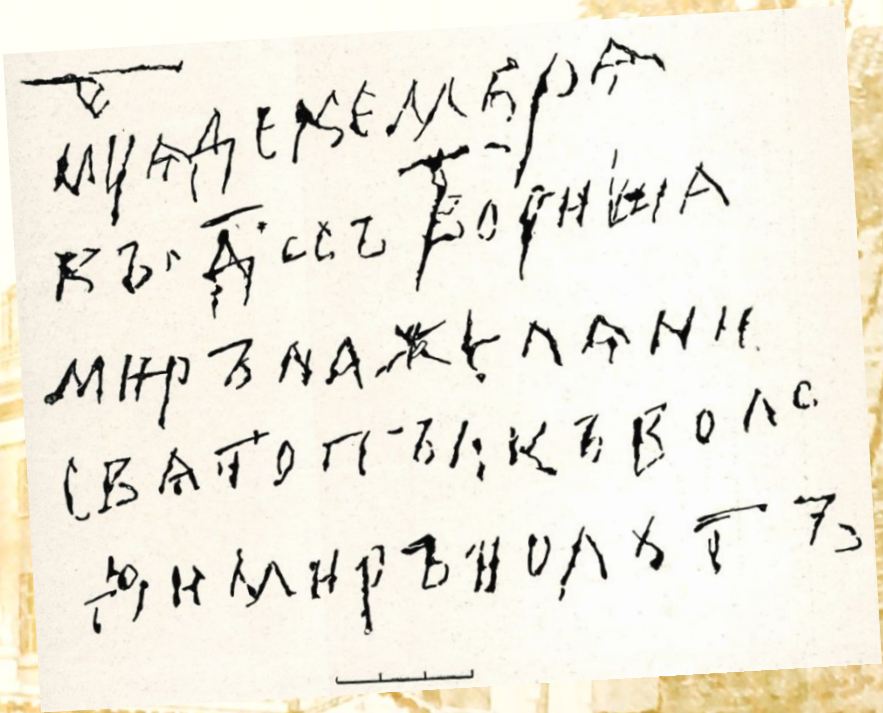 МЦѦ ДЕКЕМБРѦ
ВЪ Д҃ СЪТВОРИША
МИРЪ НА ЖЕЛѦНИ
СВѦТОПЪЛКЪ ВОЛО
ДИМИРЪ И ОЛЬГЪ